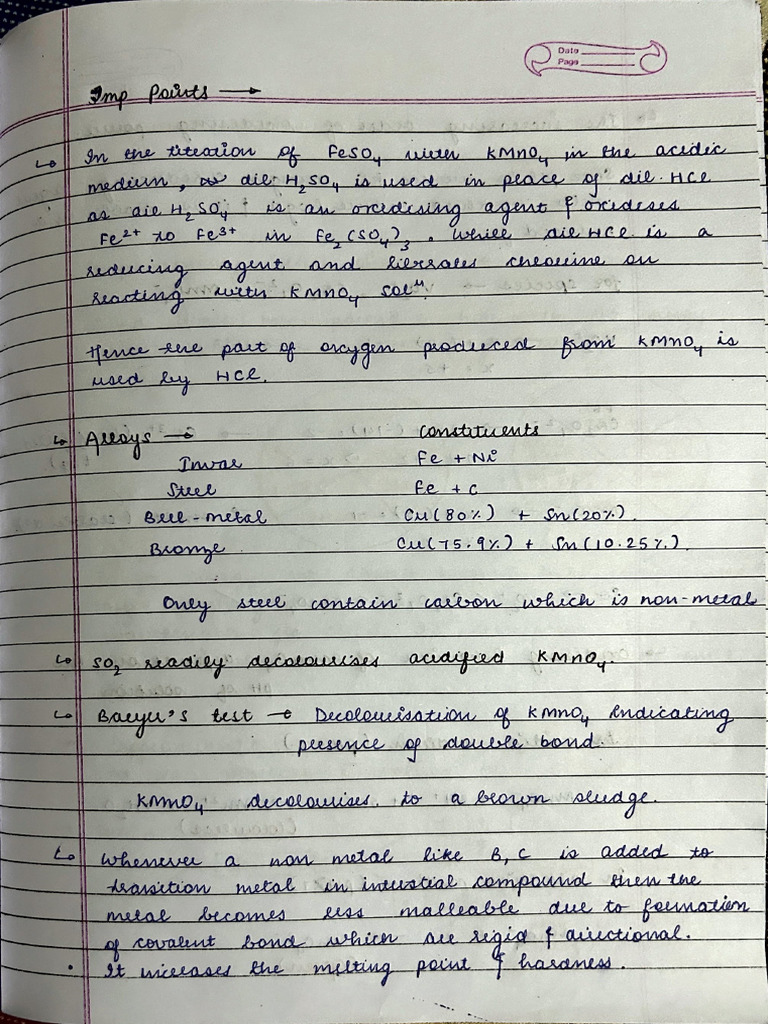 Date
Page
Imp Points →
↳ In the titration of FeSO₄ with KMnO₄ in the acidic
medium, dil H₂SO₄ is used in place of dil. HCl
as dil H₂SO₄ is an oxidising agent & oxidises
Fe²⁺ to Fe³⁺ in Fe₂(SO₄)₃. While dil HCl is a
reducing agent and librates chlorine on
reacting with KMnO₄ solⁿ.
Hence the part of oxygen produced from KMnO₄ is
used by HCl.
↳ Alloys → Constituents
Invar Fe + Ni
Steel Fe + C
Bell-metal Cu(80%) + Sn(20%).
Bronze Cu(75.9%) + Sn(10.25%).
Only steel contain carbon which is non-metal
↳ SO₂ readily decolourises acidified KMnO₄.
↳ Baeyu's test → Decolourisation of KMnO₄ indicating
presence of double bond.
KMnO₄ decolourises to a brown sludge.
↳ Whenever a non metal like B, C is added to
transition metal in interstial compound then the
metal becomes less malleable due to formation
of covalent bond which are rigid & directional.
• It increases the melting point & hardness.